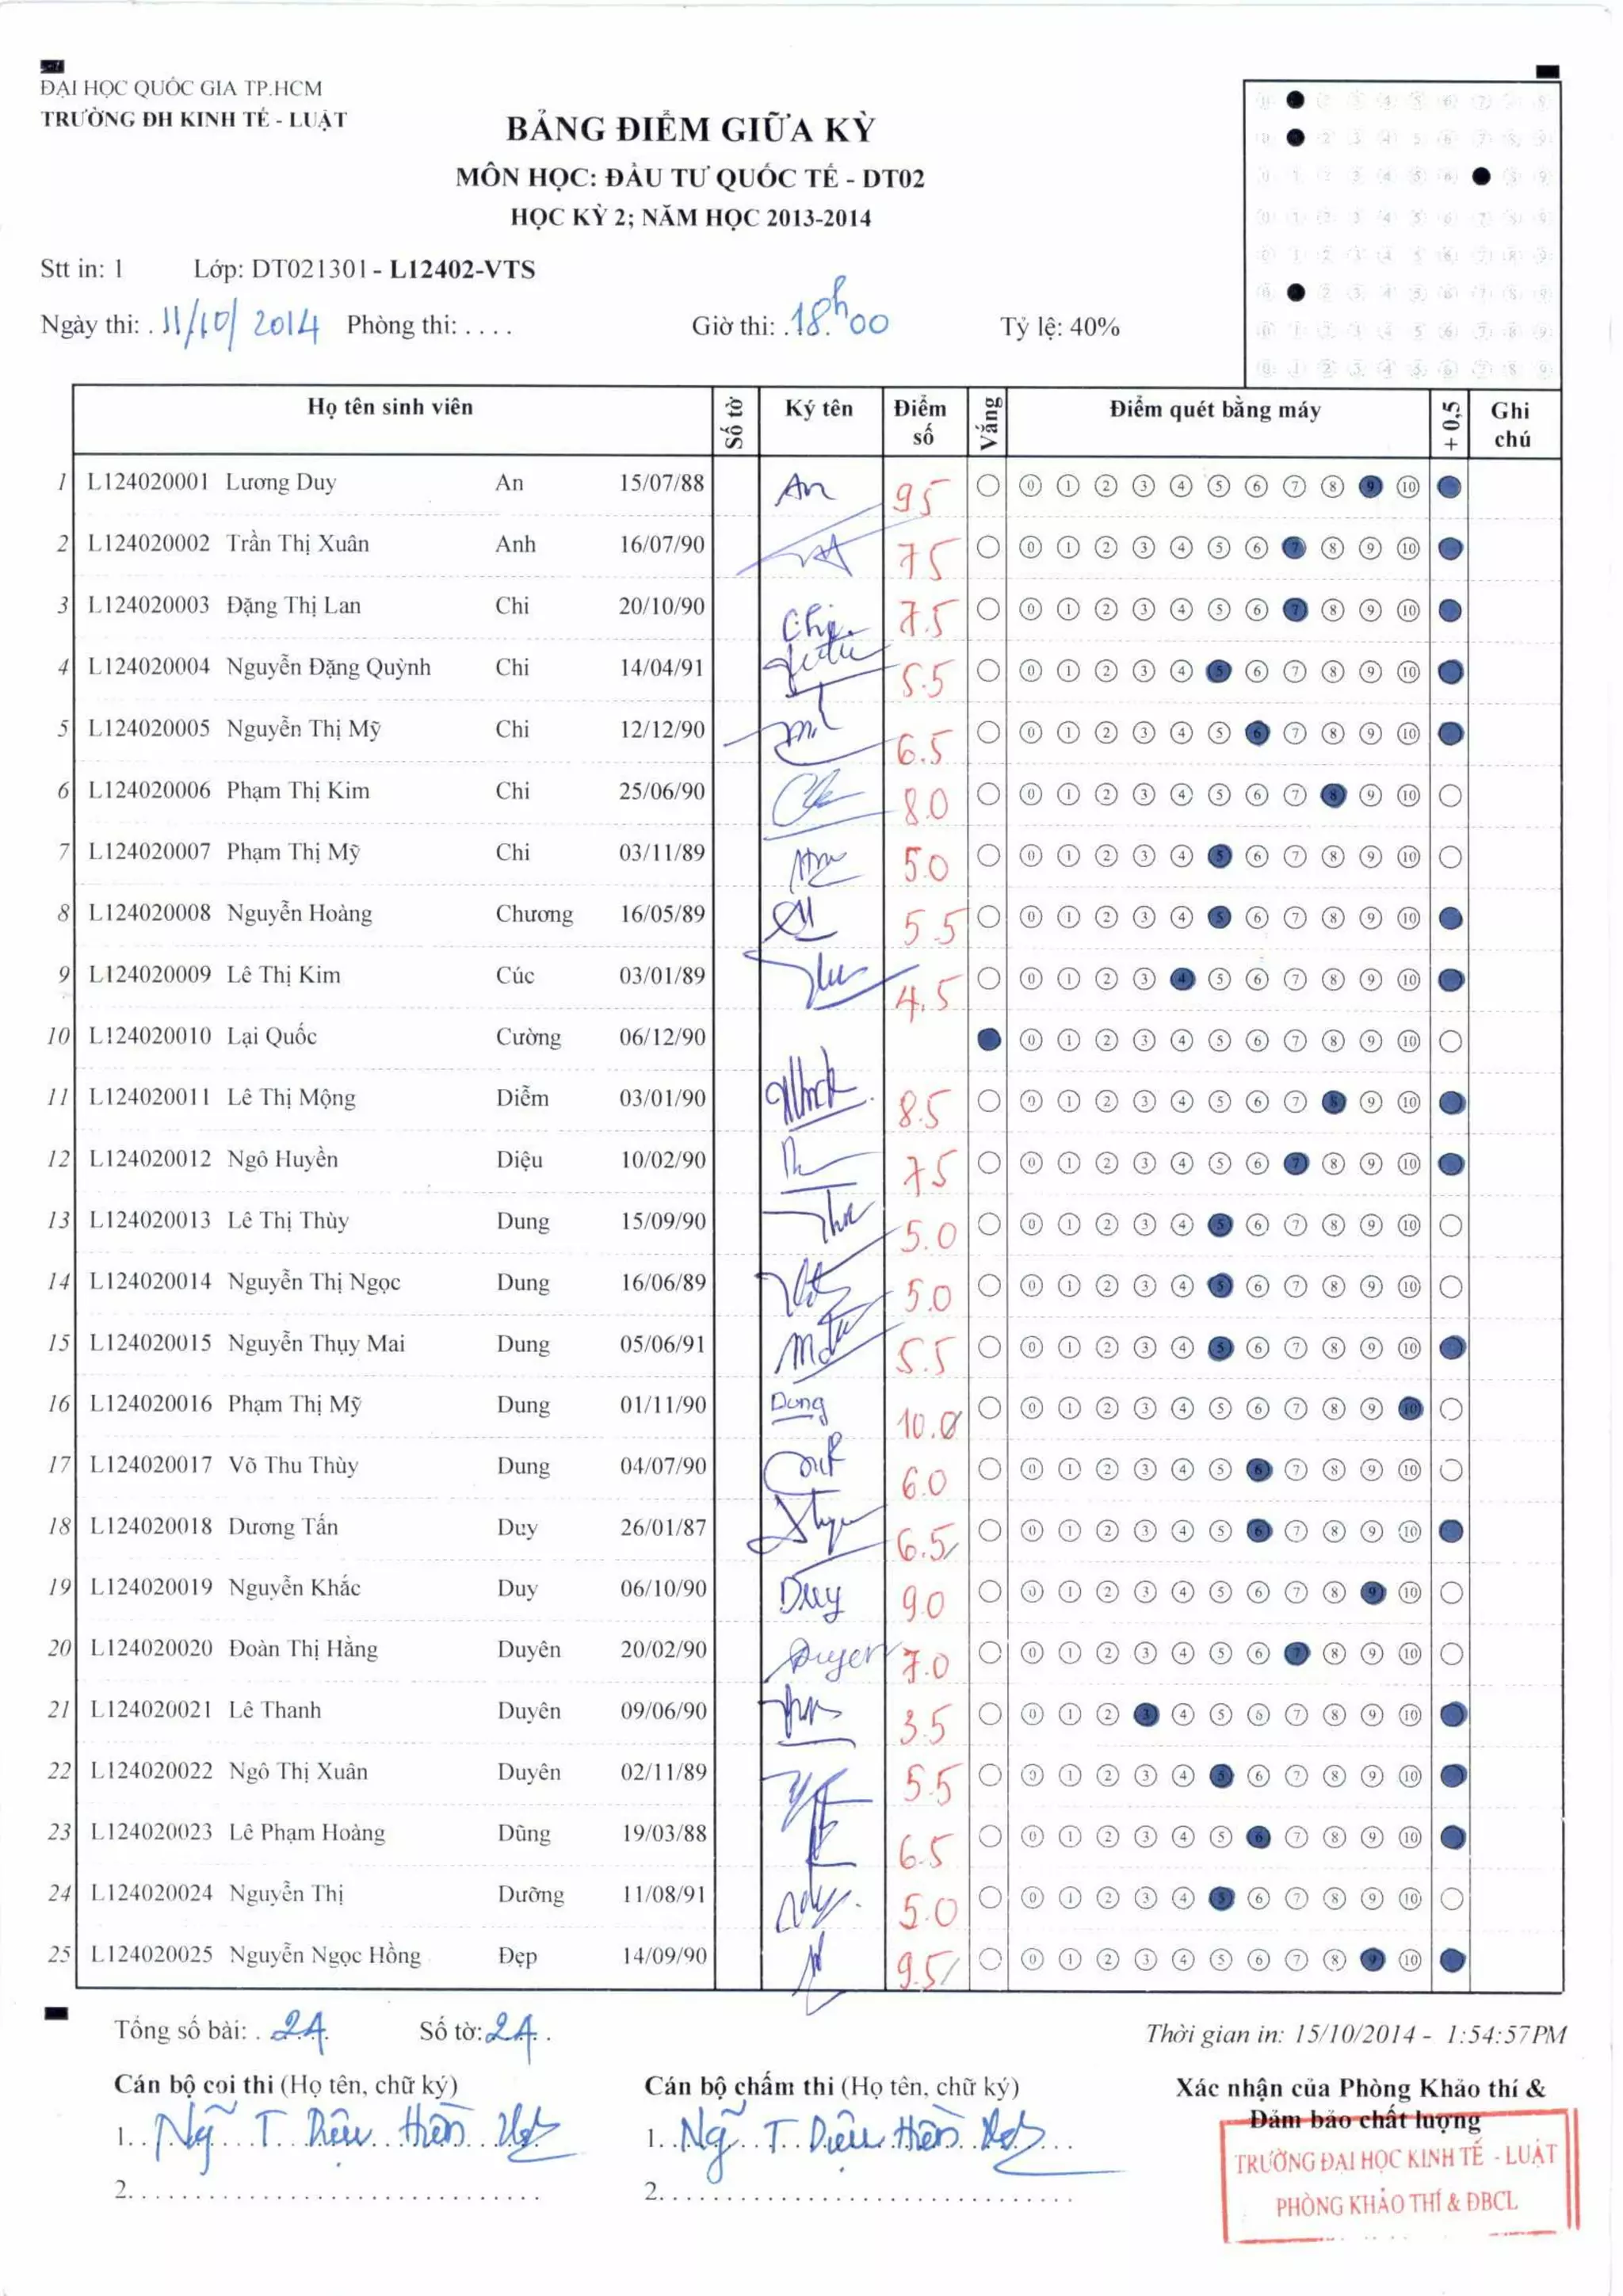 ĐẠI HỌC QUỐC GIA TP.HCM
TRƯỜNG ĐH KINH TẾ - LUẬT
BẢNG ĐIỂM GIỮA KỲ
MÔN HỌC: ĐẦU TƯ QUỐC TẾ - DT02
HỌC KỲ 2; NĂM HỌC 2013-2014
Stt in: 1 Lớp: DT021301 - L12402-VTS
Ngày thi: . 11/10/ 2014 Phòng thi: . . . . Giờ thi: . 18h00 Tỷ lệ: 40%
Họ tên sinh viên Số tờ Ký tên Điểm số Vắng Điểm quét bằng máy + 0,5 Ghi chú
1 L124020001 Lương Duy An 15/07/88 An 95 0 1 2 3 4 5 6 7 8 9 10
2 L124020002 Trần Thị Xuân Anh 16/07/90 75 0 1 2 3 4 5 6 7 8 9 10
3 L124020003 Đặng Thị Lan Chi 20/10/90 Chi 7.5 0 1 2 3 4 5 6 7 8 9 10
4 L124020004 Nguyễn Đặng Quỳnh Chi 14/04/91 5.5 0 1 2 3 4 5 6 7 8 9 10
5 L124020005 Nguyễn Thị Mỹ Chi 12/12/90 6.5 0 1 2 3 4 5 6 7 8 9 10
6 L124020006 Phạm Thị Kim Chi 25/06/90 8.0 0 1 2 3 4 5 6 7 8 9 10
7 L124020007 Phạm Thị Mỹ Chi 03/11/89 5.0 0 1 2 3 4 5 6 7 8 9 10
8 L124020008 Nguyễn Hoàng Chương 16/05/89 5.5 0 1 2 3 4 5 6 7 8 9 10
9 L124020009 Lê Thị Kim Cúc 03/01/89 4.5 0 1 2 3 4 5 6 7 8 9 10
10 L124020010 Lại Quốc Cường 06/12/90 0 1 2 3 4 5 6 7 8 9 10
11 L124020011 Lê Thị Mộng Diễm 03/01/90 8.5 0 1 2 3 4 5 6 7 8 9 10
12 L124020012 Ngô Huyền Diệu 10/02/90 75 0 1 2 3 4 5 6 7 8 9 10
13 L124020013 Lê Thị Thùy Dung 15/09/90 5.0 0 1 2 3 4 5 6 7 8 9 10
14 L124020014 Nguyễn Thị Ngọc Dung 16/06/89 5.0 0 1 2 3 4 5 6 7 8 9 10
15 L124020015 Nguyễn Thụy Mai Dung 05/06/91 5.5 0 1 2 3 4 5 6 7 8 9 10
16 L124020016 Phạm Thị Mỹ Dung 01/11/90 Dung 10.0 0 1 2 3 4 5 6 7 8 9 10
17 L124020017 Võ Thu Thùy Dung 04/07/90 6.0 0 1 2 3 4 5 6 7 8 9 10
18 L124020018 Dương Tấn Duy 26/01/87 6.5 0 1 2 3 4 5 6 7 8 9 10
19 L124020019 Nguyễn Khắc Duy 06/10/90 Duy 9.0 0 1 2 3 4 5 6 7 8 9 10
20 L124020020 Đoàn Thị Hằng Duyên 20/02/90 Duyen 7.0 0 1 2 3 4 5 6 7 8 9 10
21 L124020021 Lê Thanh Duyên 09/06/90 3.5 0 1 2 3 4 5 6 7 8 9 10
22 L124020022 Ngô Thị Xuân Duyên 02/11/89 5.5 0 1 2 3 4 5 6 7 8 9 10
23 L124020023 Lê Phạm Hoàng Dũng 19/03/88 6.5 0 1 2 3 4 5 6 7 8 9 10
24 L124020024 Nguyễn Thị Dưỡng 11/08/91 5.0 0 1 2 3 4 5 6 7 8 9 10
25 L124020025 Nguyễn Ngọc Hồng Đẹp 14/09/90 9.5 0 1 2 3 4 5 6 7 8 9 10
Tổng số bài: . 24 Số tờ: 24 .
Thời gian in: 15/10/2014 - 1:54:57PM
Cán bộ coi thi (Họ tên, chữ ký) Cán bộ chấm thi (Họ tên, chữ ký) Xác nhận của Phòng Khảo thí &
Đảm bảo chất lượng
1. Ngỹ T. Diệu Hiền 1. Ngỹ T Diệu Hiền
2. 2.
TRƯỜNG ĐẠI HỌC KINH TẾ - LUẬT
PHÒNG KHẢO THÍ & ĐBCL